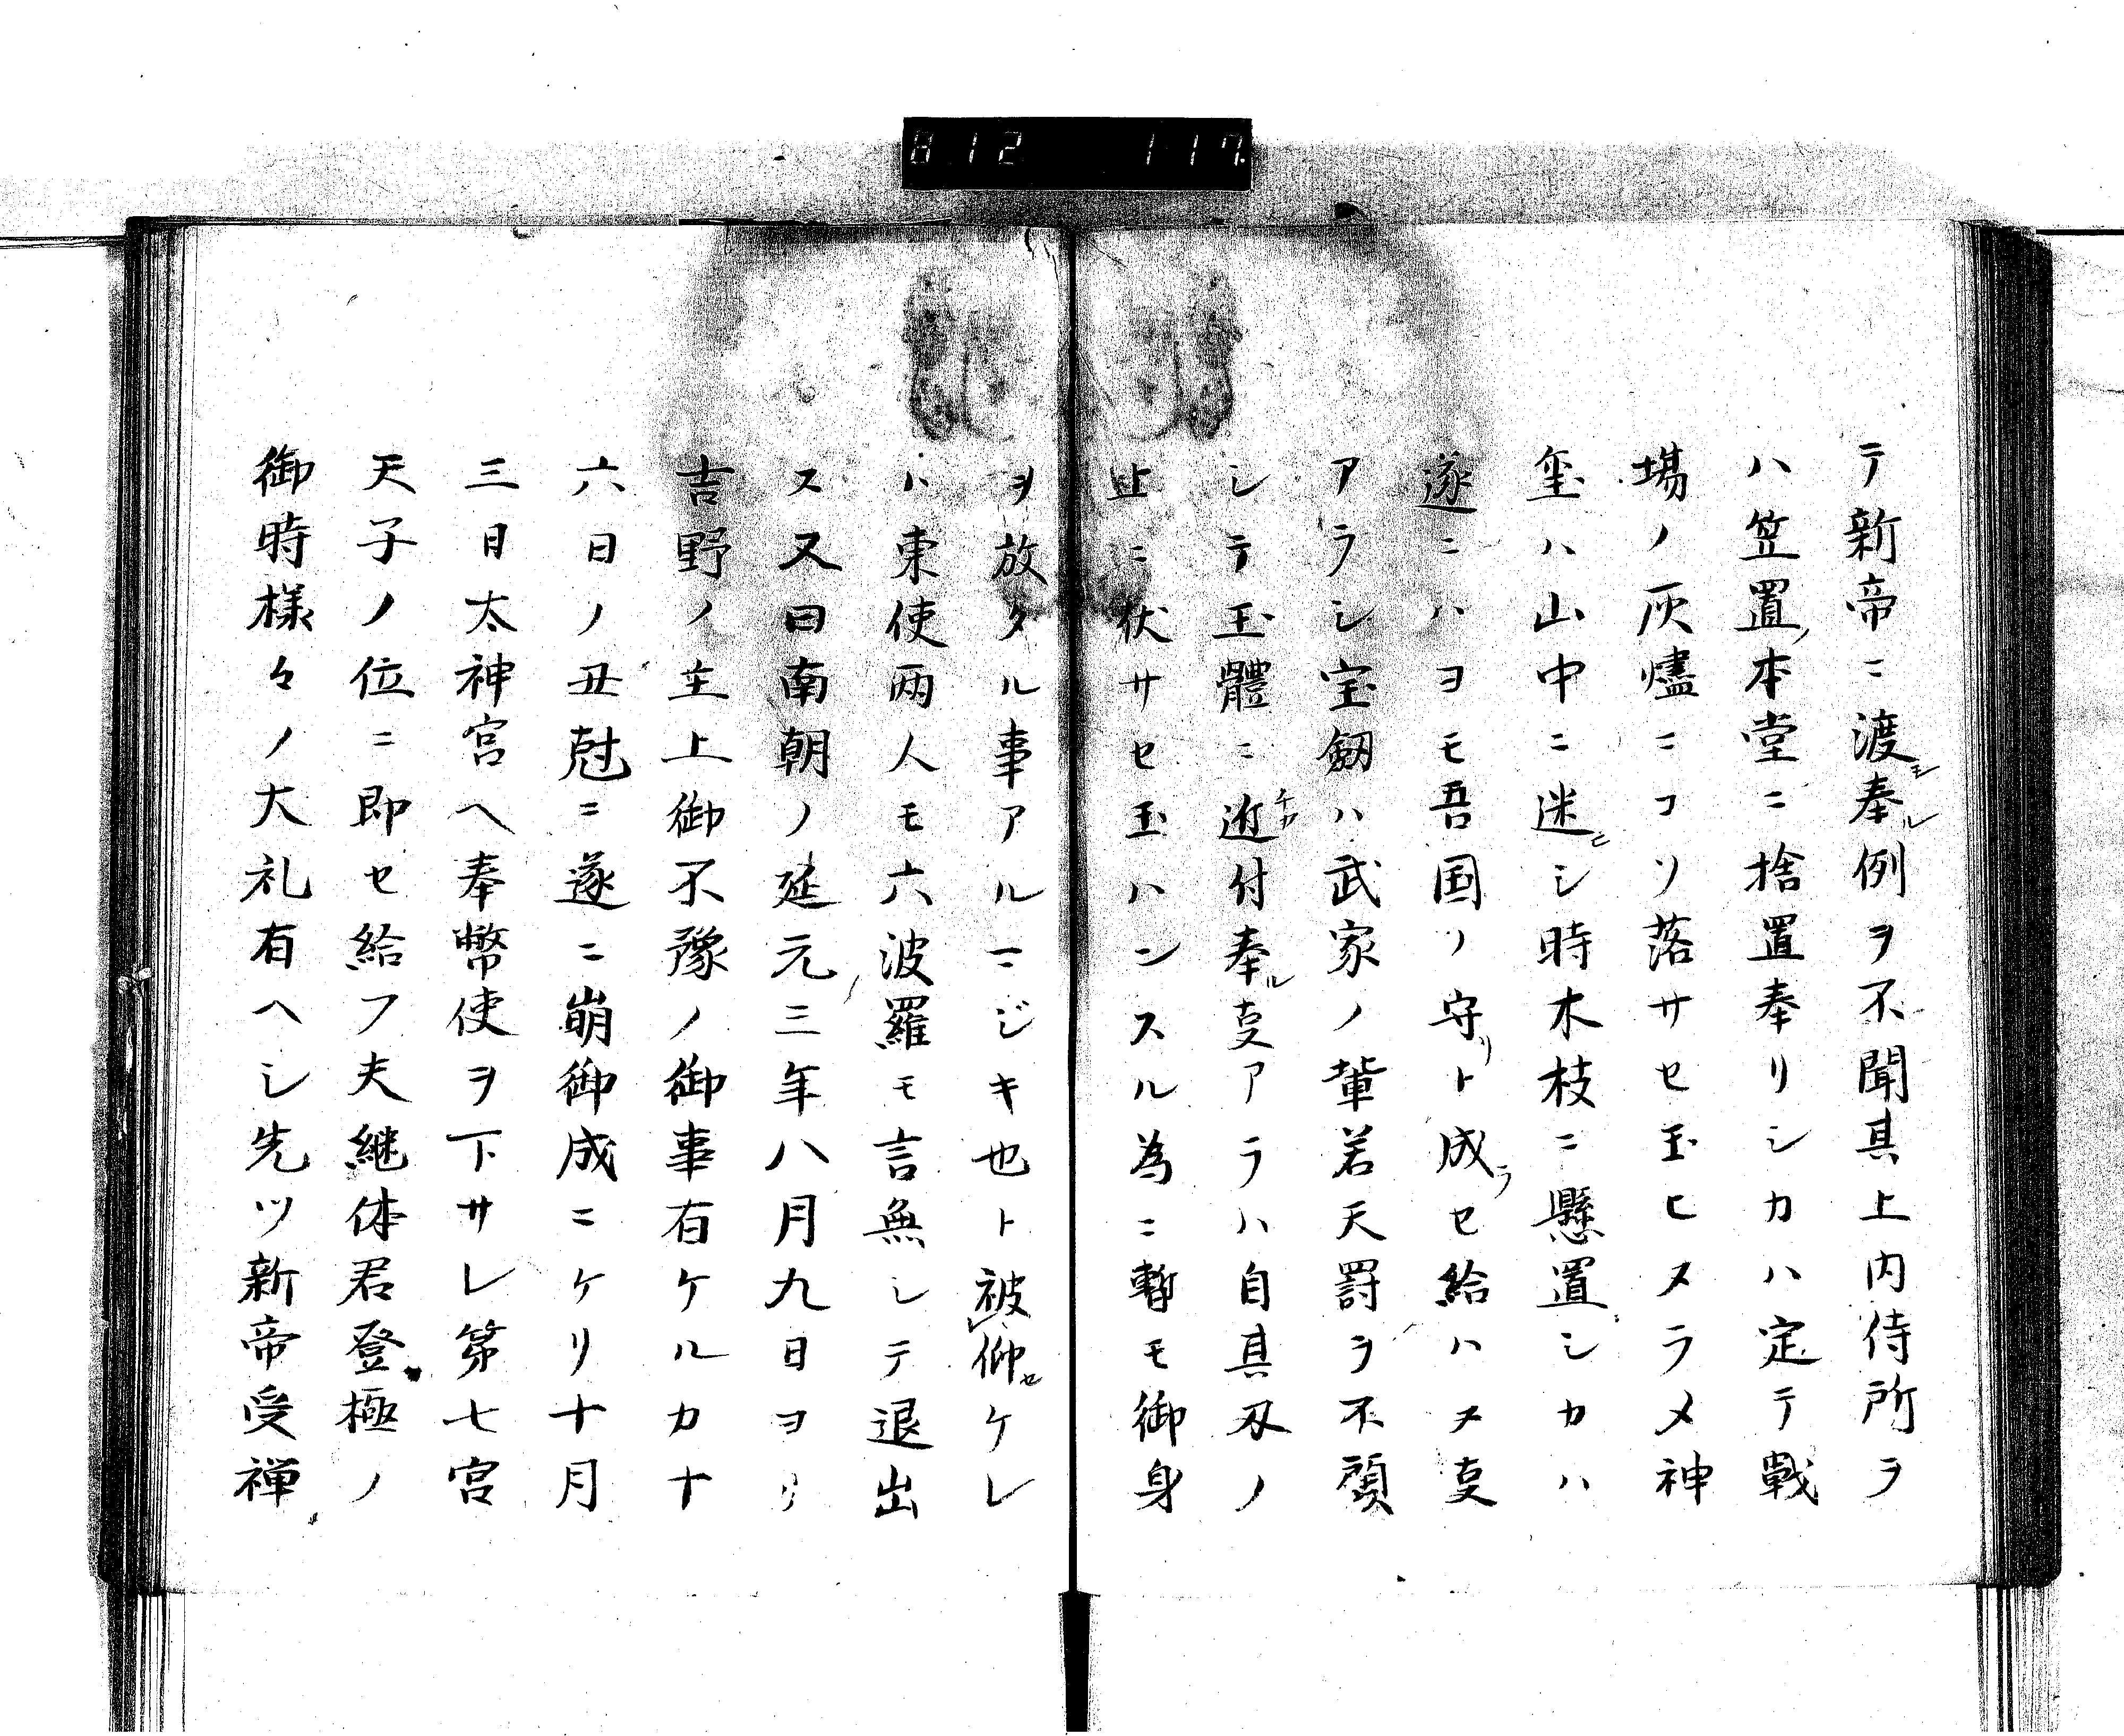 812 117
テ新帝ニ渡シ奉ル例ヲ不聞其上内侍所ヲ
ハ笠置ノ本堂ニ捨置奉リシカハ定テ戰
場ノ灰燼ニコソ落サセ玉ヒヌラメ神
璽ハ山中ニ迷ヒシ時木枝ニ懸置シカハ
遂ニハヨモ吾国ノ守リト成ラセ給ハヌ㕝
アラシ宝劔ハ武家ノ輩若天罰ヲ不顧
シテ玉體ニ近チカ付奉ル㕝アラハ自其刄ノ
上ニ伏サセ玉ハンスル為ニ暫モ御身
ヲ放タル事アルマジキ也ト被仰セケレ
ハ東使兩人モ六波羅モ言無シテ退出
ス又曰南朝ノ延元三年八月九日ヨリ
吉野ノ主上御不豫ノ御事有ケルカ十
六日ノ丑尅ニ遂ニ崩御成ニケリ十月
三日太神宮ヘ奉幣使ヲ下サレ第七宮
天子ノ位ニ即セ給フ夫継体君登極ノ
御時様々ノ大礼有ヘシ先ツ新帝受禅